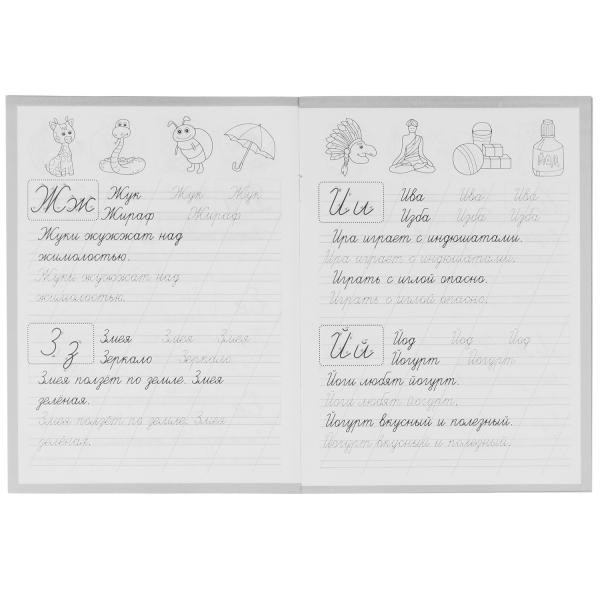 Жж
Жук Жук Жук
Жираф Жираф
Жуки жужжат над
жимолостью.
Жуки жужжат над
жимолостью.
Зз
Змея Змея Змея
Зеркало Зеркало
Змея ползёт по земле. Змея
зелёная.
Змея ползёт по земле. Змея
зелёная.
ЙОД
Ии
Ива Ива Ива
Изба Изба Изба
Ира играет с индюшатами.
Ира играет с индюшатами.
Играть с иглой опасно.
Играть с иглой опасно.
Йй
Йод Йод Йод
Йогурт Йогурт
Йоги любят йогурт.
Йоги любят йогурт.
Йогурт вкусный и полезный.
Йогурт вкусный и полезный.